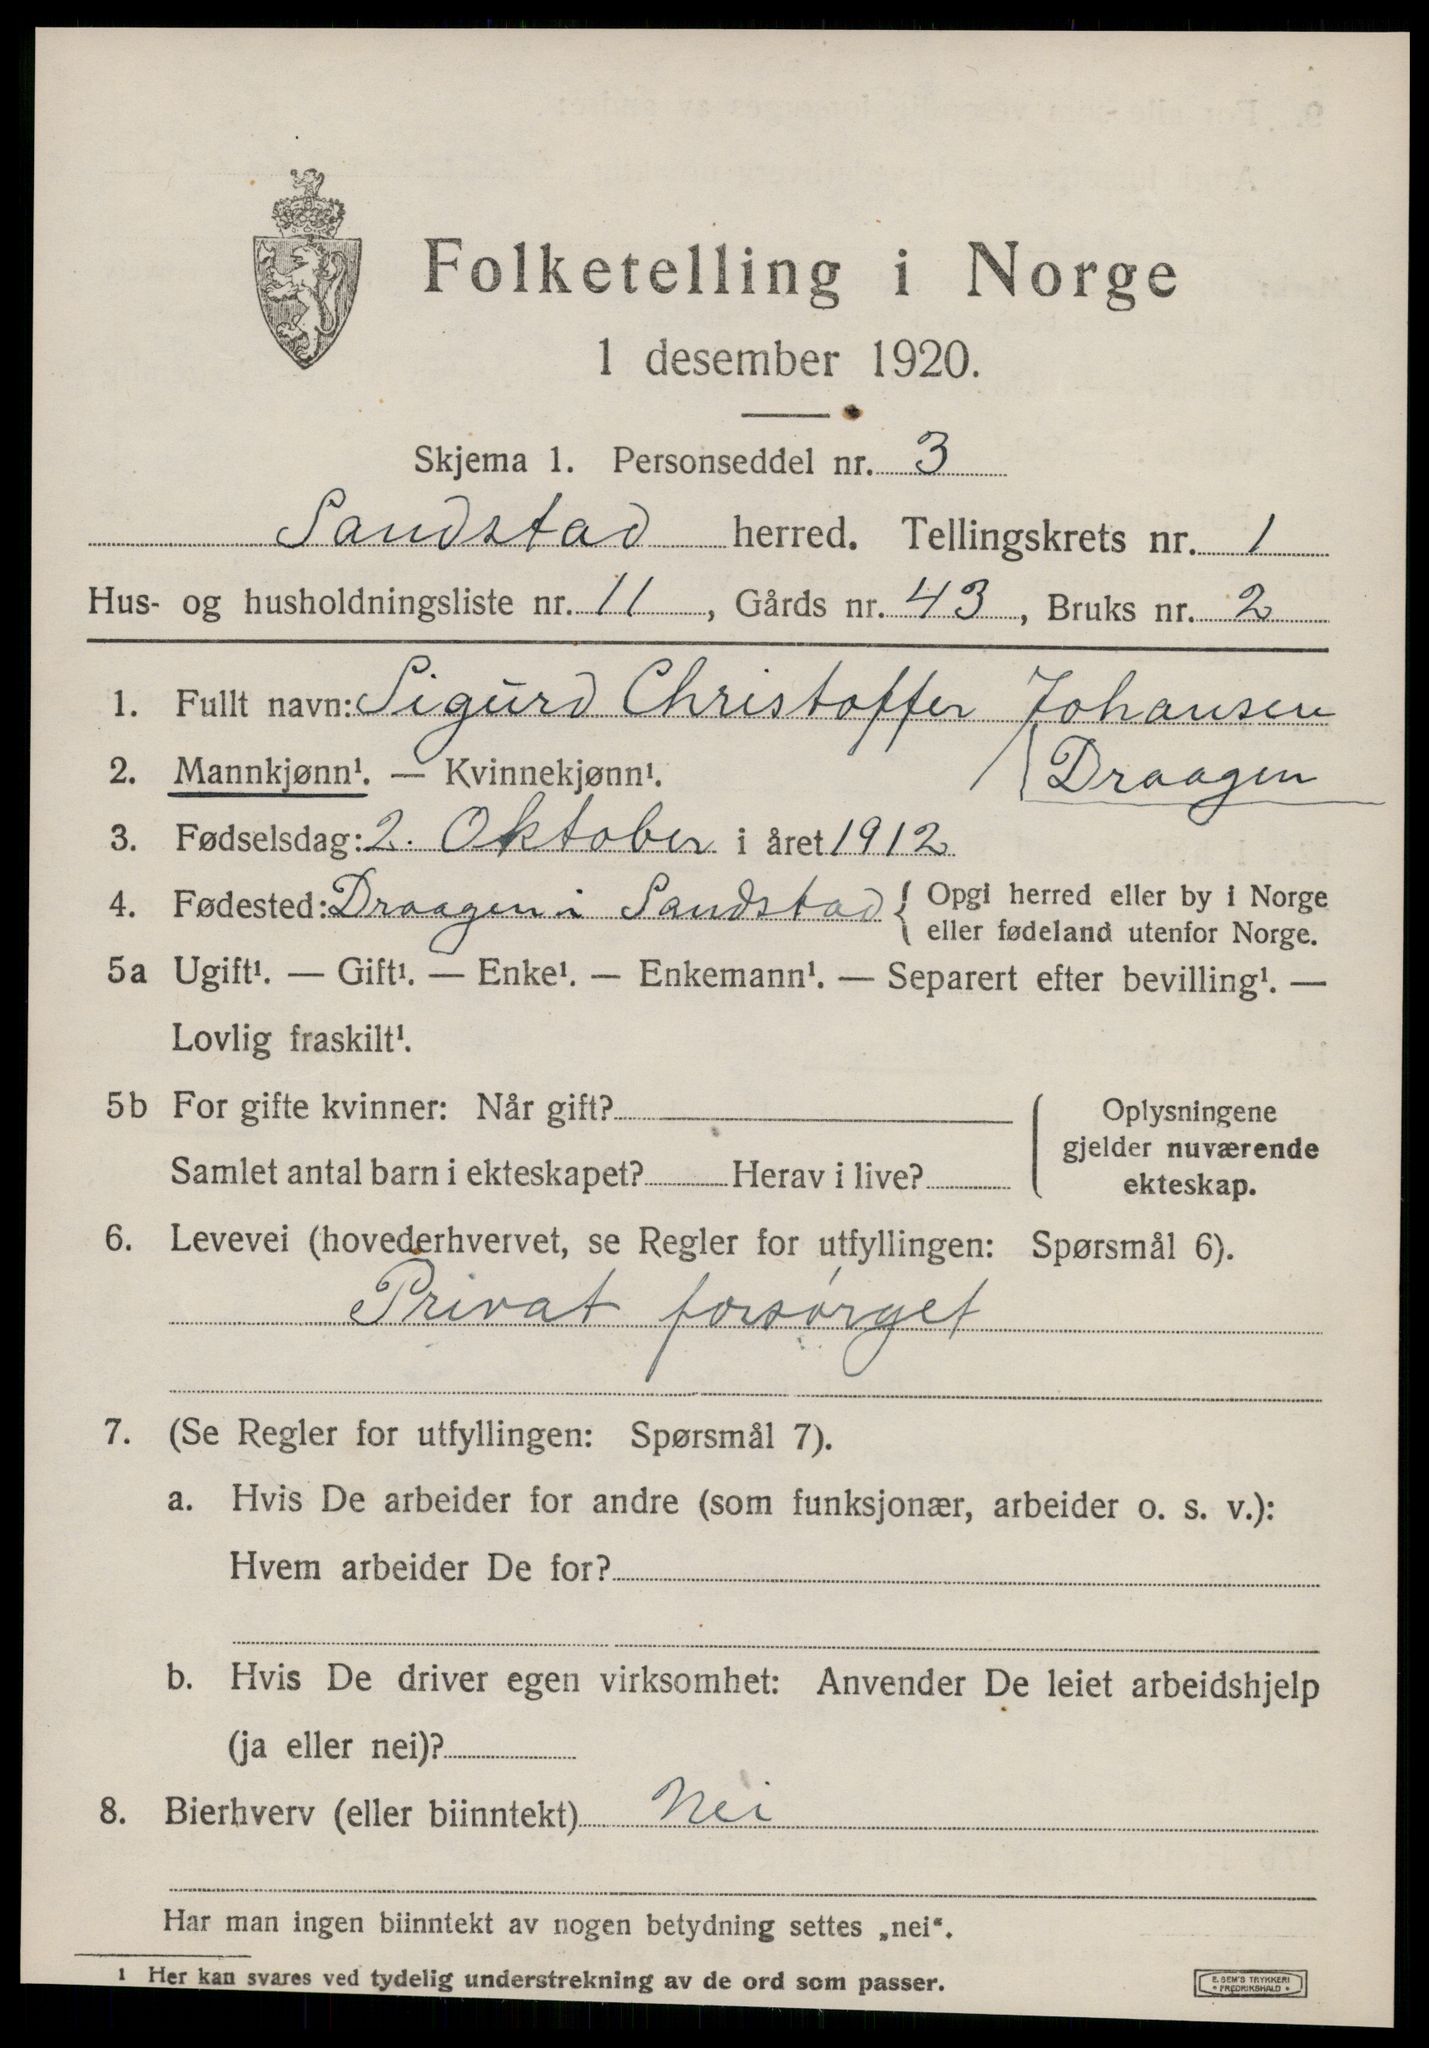 Folketelling i Norge
1 desember 1920.
Skjema 1. Personseddel nr. 3
Sandstad herred. Tellingskrets nr. 1
Hus- og husholdningsliste nr. 11, Gårds nr. 43, Bruks nr. 2
1. Fullt navn: Sigurd Christoffer Johansen
Draagen
2. Mannkjønn¹. — Kvinnekjønn¹.
3. Fødselsdag: 2. Oktober i året 1912
4. Fødested: Draagen i Sandstad { Opgi herred eller by i Norge
eller fødeland utenfor Norge.
5a Ugift¹. — Gift¹. — Enke¹. — Enkemann¹. — Separert efter bevilling¹. —
Lovlig fraskilt¹.
5b For gifte kvinner: Når gift?
Samlet antal barn i ekteskapet? Herav i live?
Oplysningene
gjelder nuværende
ekteskap.
6. Levevei (hovederhvervet, se Regler for utfyllingen: Spørsmål 6).
Privat forsørget
7. (Se Regler for utfyllingen: Spørsmål 7).
a. Hvis De arbeider for andre (som funksjonær, arbeider o. s. v.):
Hvem arbeider De for?
b. Hvis De driver egen virksomhet: Anvender De leiet arbeidshjelp
(ja eller nei)?
8. Bierhverv (eller biinntekt) Nei
Har man ingen biinntekt av nogen betydning settes „nei“.
¹ Her kan svares ved tydelig understrekning av de ord som passer.
E. SEM'S TRYKKERI
• FREDRIKSHALD •